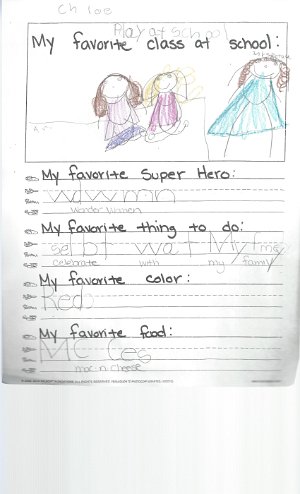 Chloe
Play at School
My favorite class at school:
My favorite Super Hero:
wdwmn
Wonder Woman
My favorite thing to do:
selbt wat My fme
celebrate with my family
My favorite color:
Red
My favorite food:
MC Ces
mac n cheese